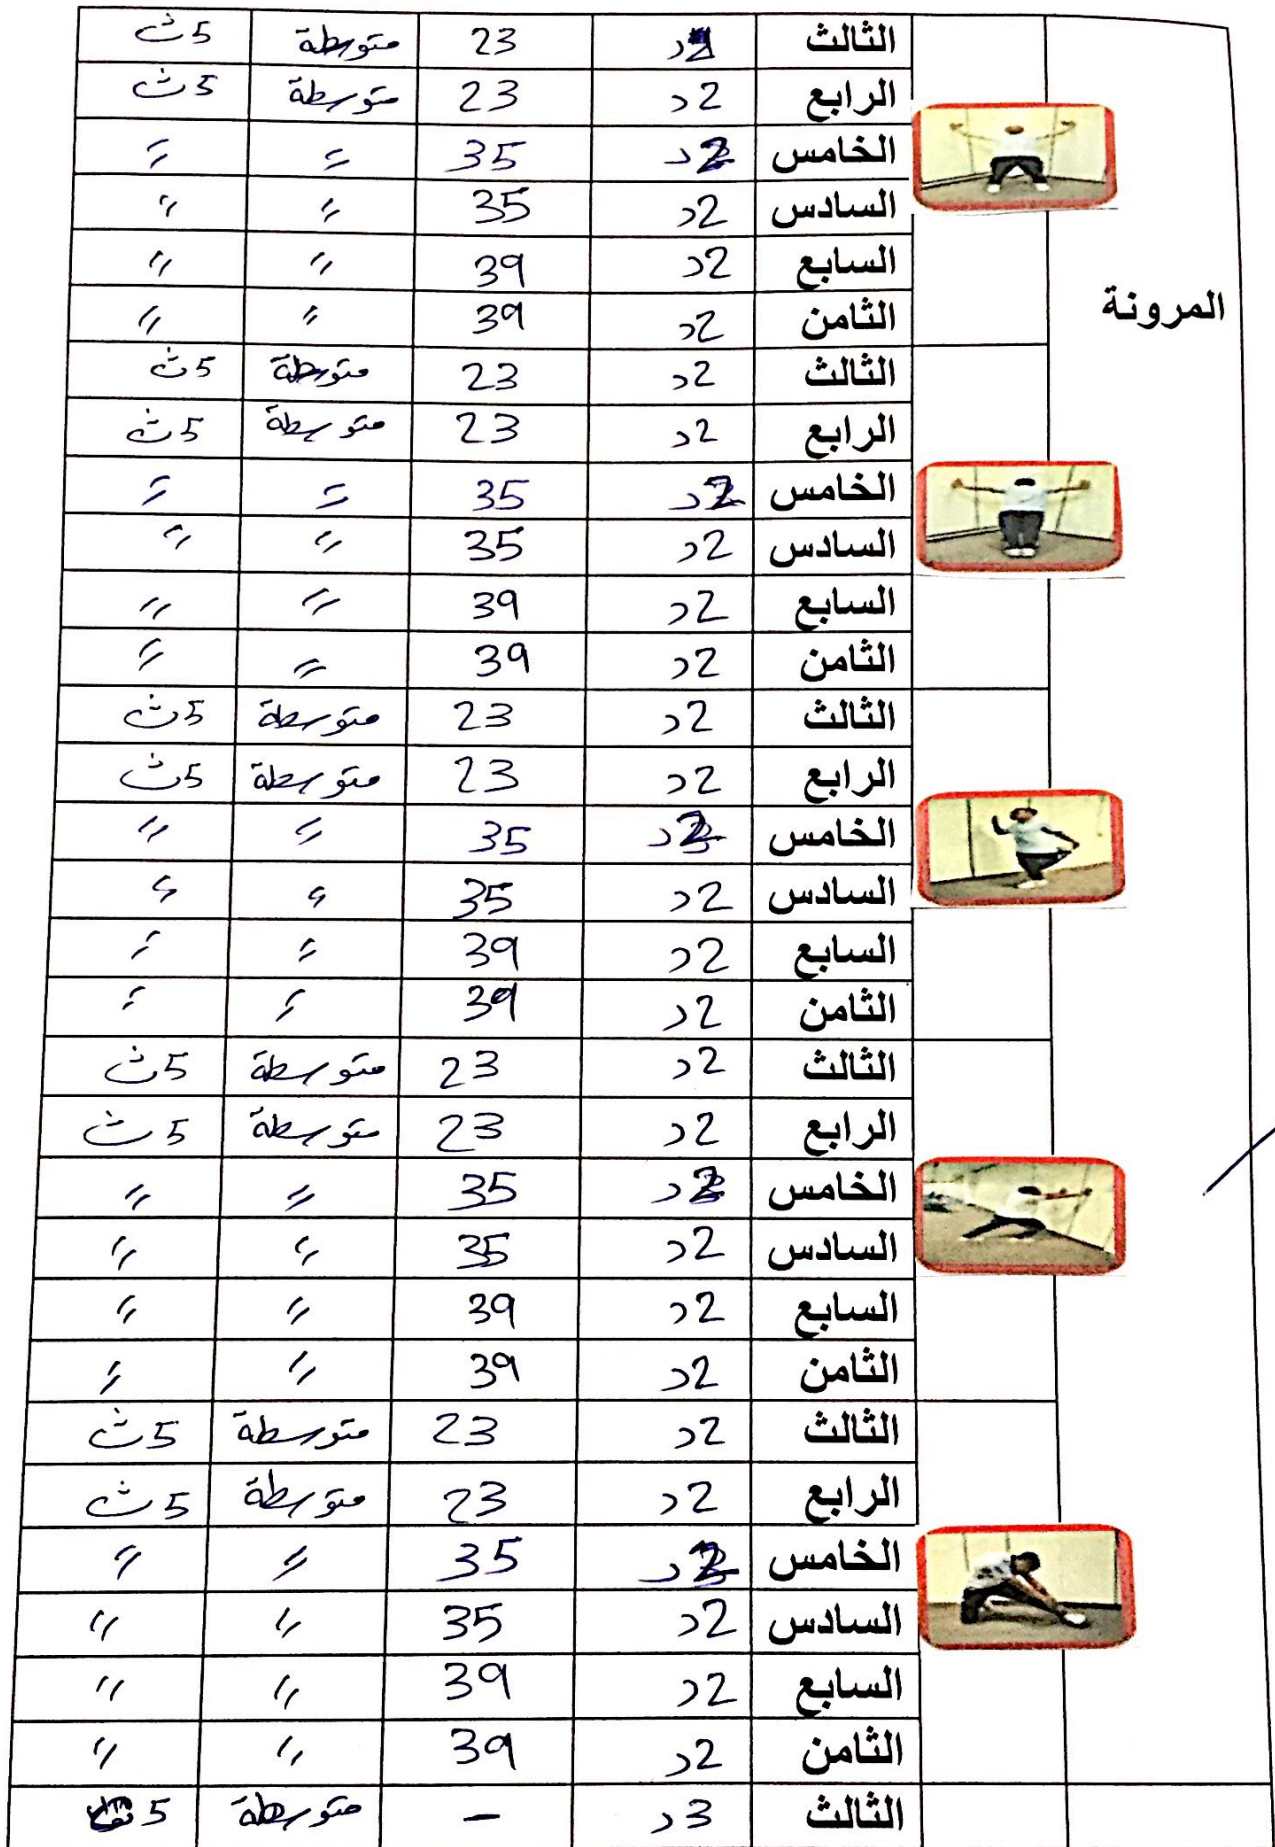 الثالث 2د 23 متوسطة 5ث
الرابع 2د 23 متوسطة 5ث
الخامس 2د 35 〃 〃
السادس 2د 35 〃 〃
السابع 2د 39 〃 〃
المرونة الثامن 2د 39 〃 〃
الثالث 2د 23 متوسطة 5ث
الرابع 2د 23 متوسطة 5ث
الخامس 2د 35 〃 〃
السادس 2د 35 〃 〃
السابع 2د 39 〃 〃
الثامن 2د 39 〃 〃
الثالث 2د 23 متوسطة 5ث
الرابع 2د 23 متوسطة 5ث
الخامس 2د 35 〃 〃
السادس 2د 35 〃 〃
السابع 2د 39 〃 〃
الثامن 2د 39 〃 〃
الثالث 2د 23 متوسطة 5ث
الرابع 2د 23 متوسطة 5ث
الخامس 2د 35 〃 〃
السادس 2د 35 〃 〃
السابع 2د 39 〃 〃
الثامن 2د 39 〃 〃
الثالث 2د 23 متوسطة 5ث
الرابع 2د 23 متوسطة 5ث
الخامس 2د 35 〃 〃
السادس 2د 35 〃 〃
السابع 2د 39 〃 〃
الثامن 2د 39 〃 〃
الثالث 3د - متوسطة 5